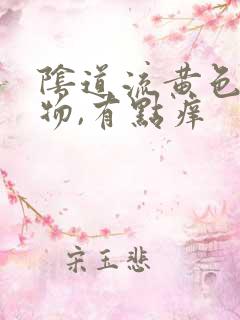 陰道流黄色
物,有點痒
宋玉悲